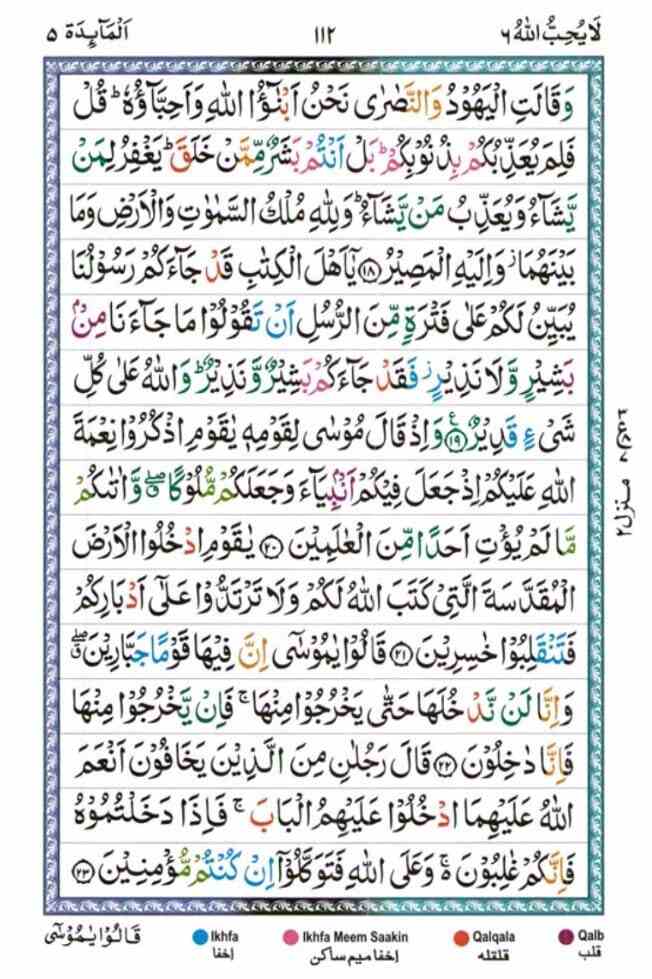 لَا يُحِبُّ اللهُ ٦ ١١٢ اَلْمَآئِدَة ٥
وَقَالَتِ الْيَهُوْدُ وَالنَّصٰرٰى نَحْنُ اَبْنٰٓؤُا اللهِ وَاَحِبَّآؤُهٗ ؕ قُلْ
فَلِمَ يُعَذِّبُكُمْ بِذُنُوْبِكُمْ ؕ بَلْ اَنْتُمْ بَشَرٌ مِّمَّنْ خَلَقَ ؕ يَغْفِرُ لِمَنْ
يَّشَآءُ وَيُعَذِّبُ مَنْ يَّشَآءُ ؕ وَلِلّٰهِ مُلْكُ السَّمٰوٰتِ وَالْاَرْضِ وَمَا
بَيْنَهُمَا ز وَاِلَيْهِ الْمَصِيْرُ ۝١٨ يٰۤاَهْلَ الْكِتٰبِ قَدْ جَآءَكُمْ رَسُوْلُنَا
يُبَيِّنُ لَكُمْ عَلٰى فَتْرَةٍ مِّنَ الرُّسُلِ اَنْ تَقُوْلُوْا مَا جَآءَنَا مِنْۢ
بَشِيْرٍ وَّلَا نَذِيْرٍ ز فَقَدْ جَآءَكُمْ بَشِيْرٌ وَّنَذِيْرٌ ؕ وَاللهُ عَلٰى كُلِّ
شَىْءٍ قَدِيْرٌ ۝١٩ ع وَاِذْ قَالَ مُوْسٰى لِقَوْمِهٖ يٰقَوْمِ اذْكُرُوْا نِعْمَةَ
اللهِ عَلَيْكُمْ اِذْ جَعَلَ فِيْكُمْ اَنْۢبِيَآءَ وَجَعَلَكُمْ مُّلُوْكًا ۖق وَّاٰتٰىكُمْ
مَّا لَمْ يُؤْتِ اَحَدًا مِّنَ الْعٰلَمِيْنَ ۝٢٠ يٰقَوْمِ ادْخُلُوا الْاَرْضَ
الْمُقَدَّسَةَ الَّتِىْ كَتَبَ اللهُ لَكُمْ وَلَا تَرْتَدُّوْا عَلٰٓى اَدْبَارِكُمْ
فَتَنْقَلِبُوْا خٰسِرِيْنَ ۝٢١ قَالُوْا يٰمُوْسٰٓى اِنَّ فِيْهَا قَوْمًا جَبَّارِيْنَ ۖق
وَاِنَّا لَنْ نَّدْخُلَهَا حَتّٰى يَخْرُجُوْا مِنْهَا ۚ فَاِنْ يَّخْرُجُوْا مِنْهَا
فَاِنَّا دٰخِلُوْنَ ۝٢٢ قَالَ رَجُلٰنِ مِنَ الَّذِيْنَ يَخَافُوْنَ اَنْعَمَ
اللهُ عَلَيْهِمَا ادْخُلُوْا عَلَيْهِمُ الْبَابَ ۚ فَاِذَا دَخَلْتُمُوْهُ
فَاِنَّكُمْ غٰلِبُوْنَ ەۚ وَعَلَى اللهِ فَتَوَكَّلُوْٓا اِنْ كُنْتُمْ مُّؤْمِنِيْنَ ۝٢٣
منزل ٢
قَالُوْا يٰمُوْسٰٓى
Ikhfa Ikhfa Meem Saakin Qalqala Qalb
اِخفا اِخفا ميم ساكن قلقله قلب